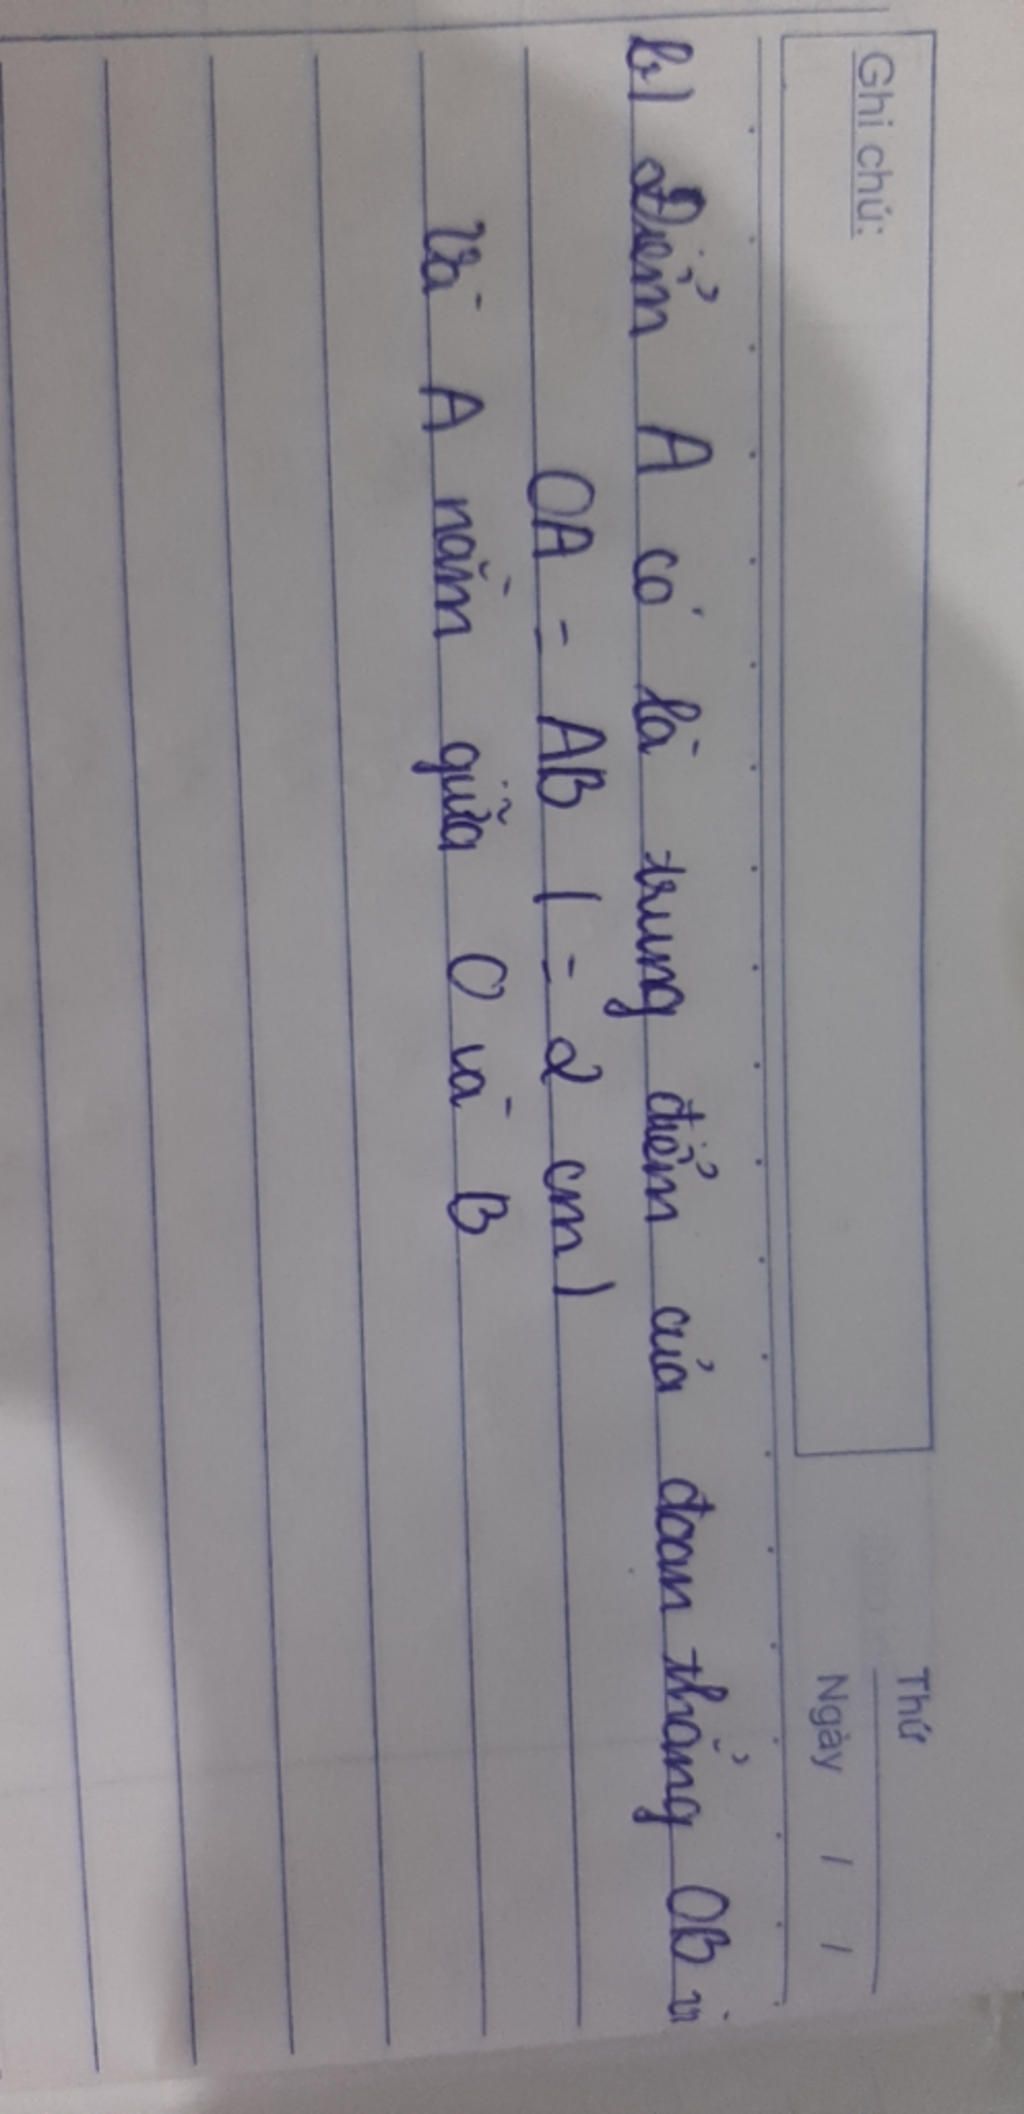 Ghi chú:
Thứ
Ngày / /
b) Điểm A có là trung điểm của đoan thẳng OB vì
OA = AB ( = 2 cm)
Và A nằm giữa O và B